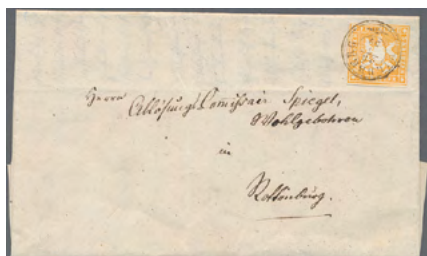 Herrn
Ablösungs Comissair Spiegel,
Wohlgeboren
in
Rottenburg.